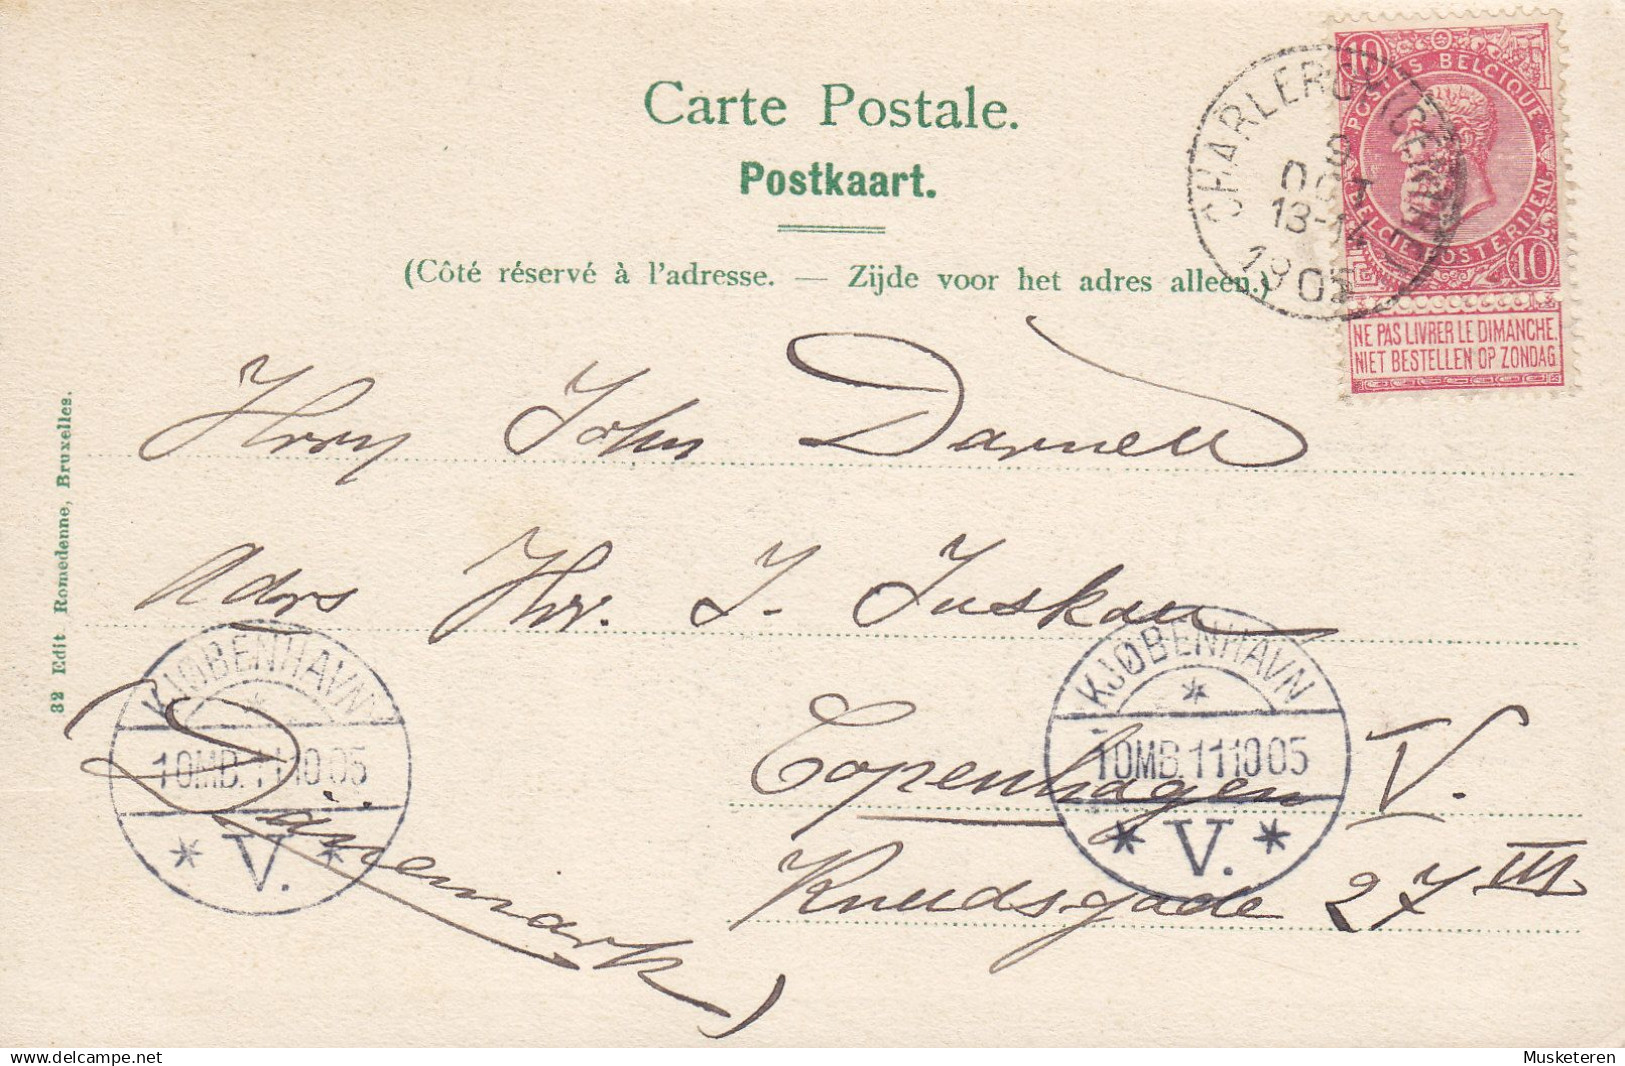 Carte Postale.
Postkaart.
(Côté réservé à l'adresse. — Zijde voor het adres alleen.)
10 10
POSTES BELGIQUE
BELGIE POSTERIJEN
10
NE PAS LIVRER LE DIMANCHE.
NIET BESTELLEN OP ZONDAG
CHARLEROY
OCT
13-14
1905
32 Edit Romedenne, Bruxelles.
John Darnell
Adrs Hrr. J. Juskau
Copenhagen V.
Knudsgade 27 III
(Dänemark)
KJØBENHAVN
10MB.111005
V.
KJØBENHAVN
10MB.111005
V.
delcampe.net
Musketeren